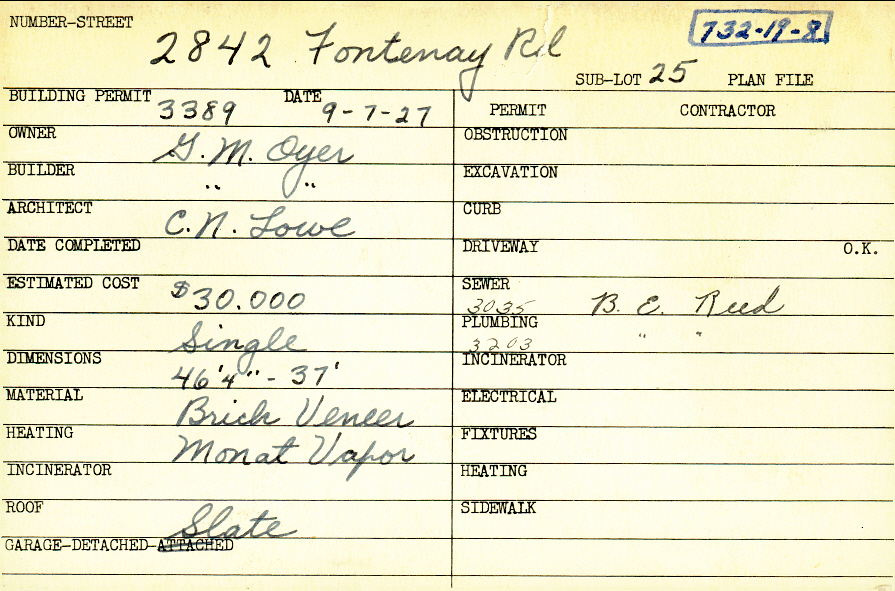 NUMBER-STREET
2842 Fontenay Rd
732-19-8
SUB-LOT 25 PLAN FILE
BUILDING PERMIT 3389 DATE 9-7-27
PERMIT CONTRACTOR
OWNER G. M. Oyer
OBSTRUCTION
BUILDER " "
EXCAVATION
ARCHITECT C. N. Lowe
CURB
DATE COMPLETED
DRIVEWAY O.K.
ESTIMATED COST $30.000
SEWER 3035 B. E. Reed
KIND Single
PLUMBING 3203 " "
DIMENSIONS 46'4" - 37'
INCINERATOR
MATERIAL Brick Veneer
ELECTRICAL
HEATING Monat Vapor
FIXTURES
INCINERATOR
HEATING
ROOF Slate
SIDEWALK
GARAGE-DETACHED-ATTACHED